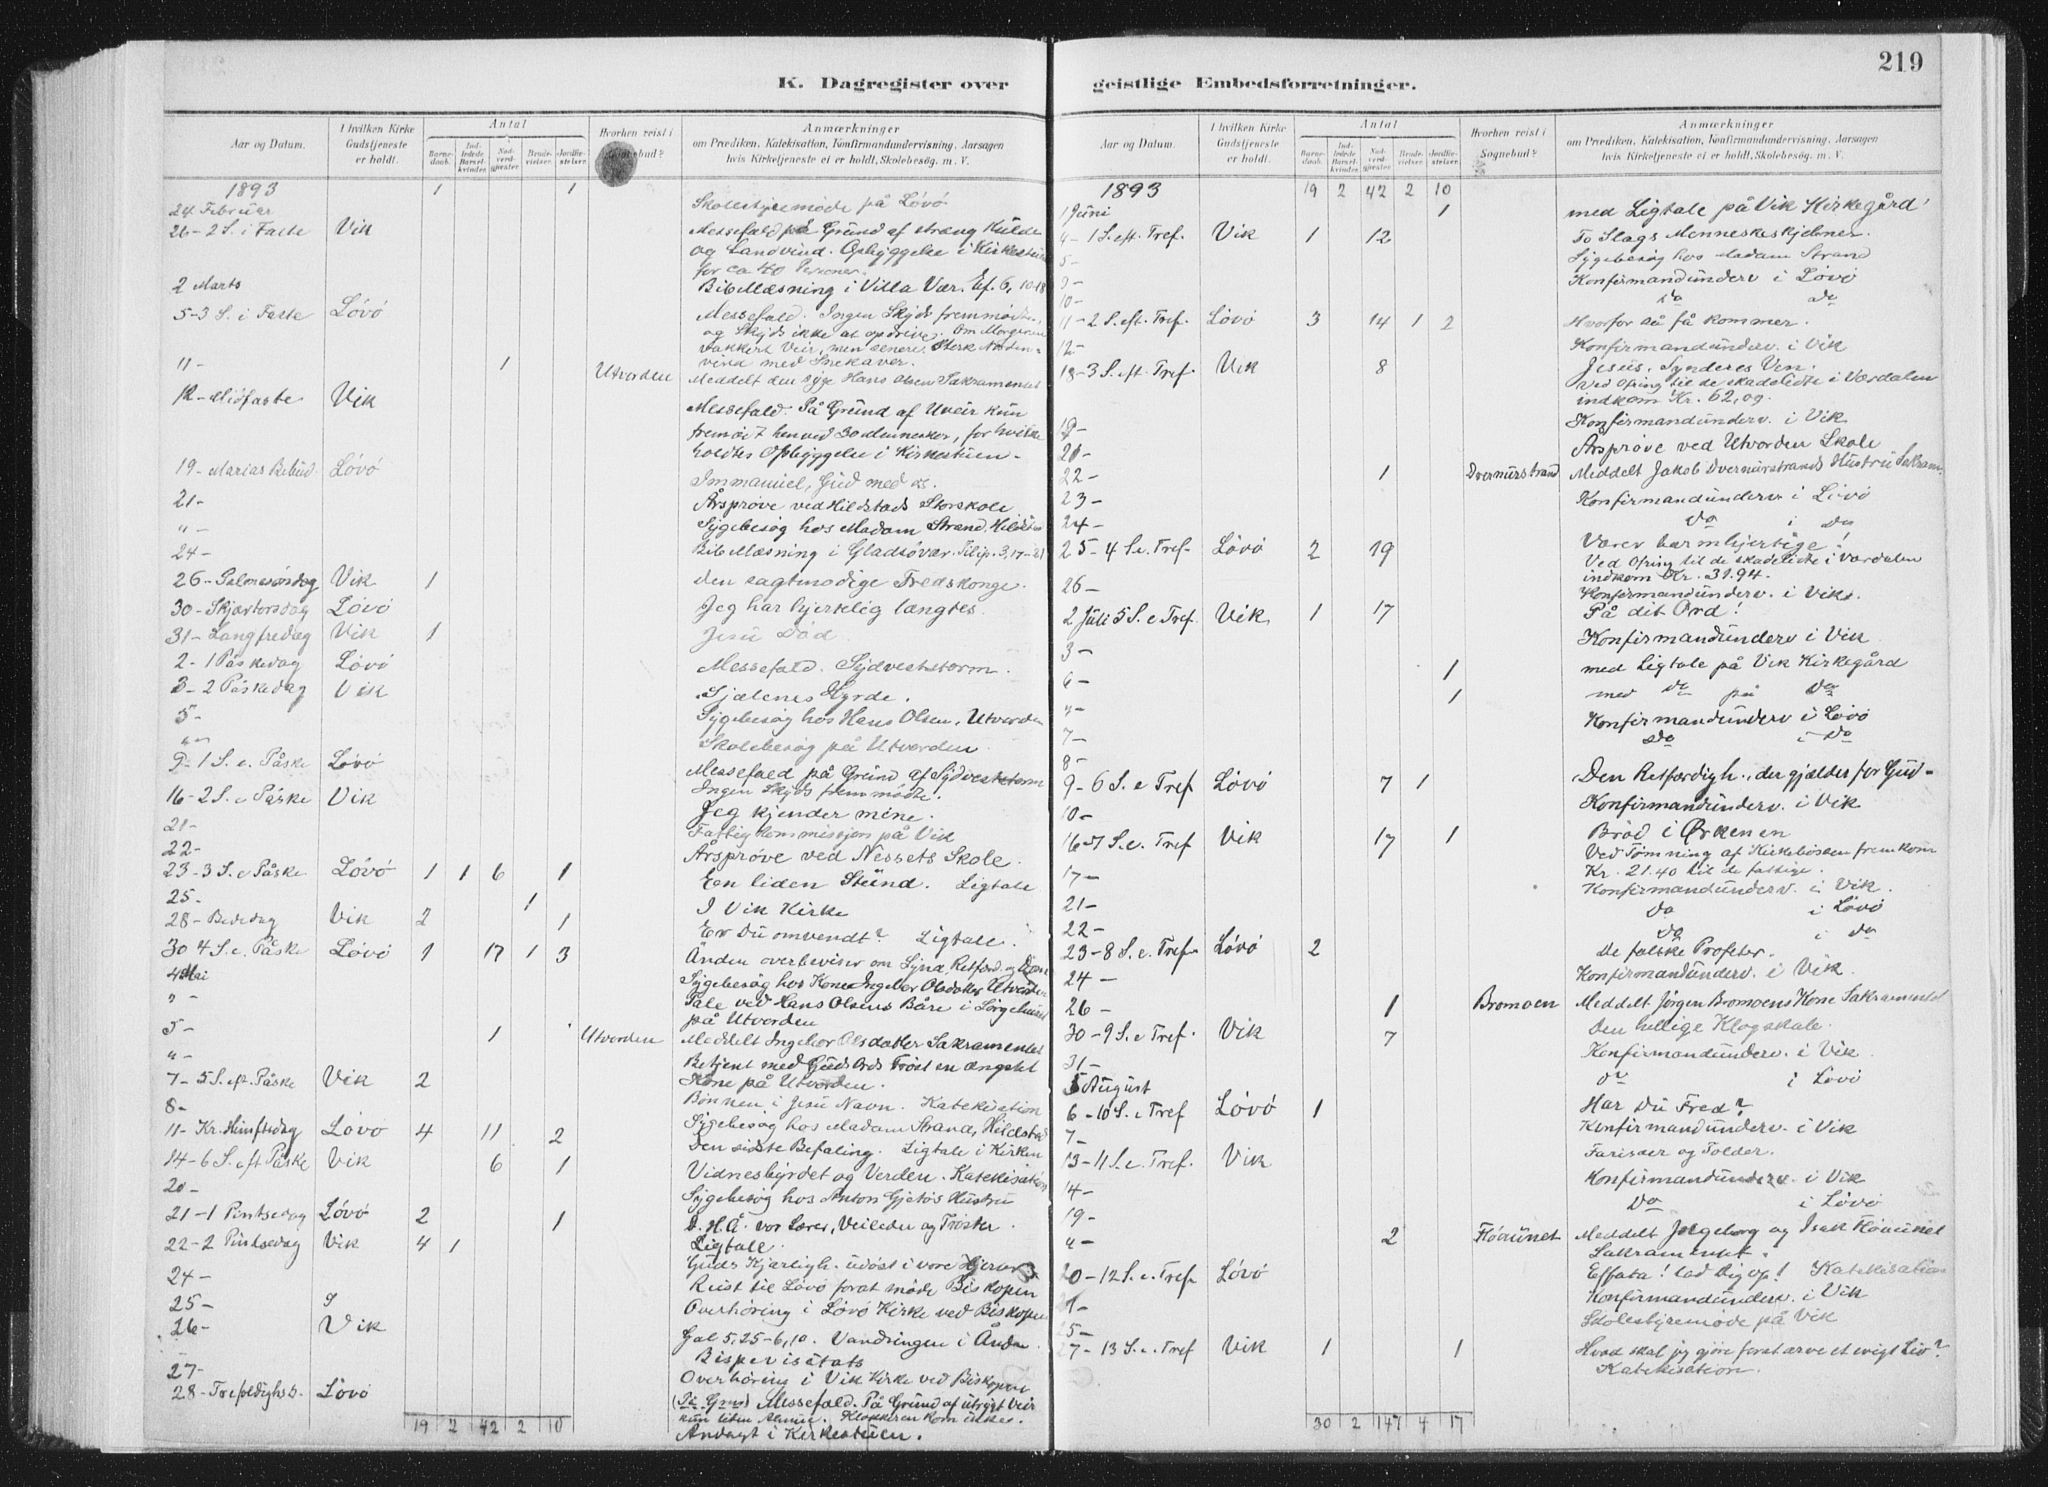 219
K. Dagregister over geistlige Embedsforretninger.
Aar og Datum. I hvilken Kirke Gudstjeneste er holdt. Antal Barnedaab. Indledede Barselkvinder. Nadverdgjester. Brudevielser. Jordfæstelser. Hvorhen reist i Sognebud? Anmærkninger om Prædiken, Katekisation, Konfirmandundervisning, Aarsagen hvis Kirketjeneste ei er holdt, Skolebesøg. m. V.
1893 1 1
24 Februar Skolestyremøde på Løvø
26- 2 S. i Faste Vik Messefald på Grund af streng Kulde
og Landvind. Opbyggelse i Kirkestuen
for ca 40 Personer.
2 Marts Bibellæsning i Villa Vær. Ef. 6, 10-18
5-3 S. i Faste Løvø Messefald. Ingen Skyds fremmødte,
og Skyds ikke at opdrive. Om Morgenen
vakkert Veir, men senere sterk Norden-
vind med Snekaver.
11- 1 Utvorden Meddelt den syge Hans Olsen Sakramentet
12- Midfaste Vik Messefald. På Grund af Uveir kun
fremmødt henved 30 Mennesker, for hvilke
holdtes Opbyggelse i Kirkestuen-
19- Marias Bebud Løvø Immanuel, Gud med os.
21- Årsprøve ved Hildstads Storskole
"- Sygebesøg hos Madam Strand, Hildstad
24- Bibellæsning i Gladsøvær. Filip. 3, 17-21
26- Palmesøndag Vik 1 Den sagtmodige Fredskonge.
30- Skjærtorsdag Løvø Jeg har hjertelig længtes.
31- Langfredag Vik 1 Jesu Død
2- 1 Påskedag Løvø Messefald. Sydveststorm.
3- 2 Påskedag Vik Sjælenes Hyrde.
5- Sygebesøg hos Hans Olsen, Utvorden
"- Skolebesøg på Utvorden
9- 1 S. e. Påske Løvø Messefald på Grund af Sydveststorm
Ingen Skyds fremmødte.
16- 2 S. e Påske Vik Jeg kjender mine.
21- Fattigkommissjon på Vik
22- Årsprøve ved Nessets Skole.
23- 3 S. e Påske Løvø 1 1 6 1 En liden Stund. Ligtale
25. 1 I Vik Kirke
28- Bededag Vik 2 1 Er Du omvendt? Ligtale.
30 4 S. e. Påske Løvø 1 17 1 3 Ånden overbeviser om Synd, Retfærd. og Dom
4 Mai Sygebesøg hos Kone Ingebor Olsdatter Utvorden
"- Tale ved Hans Olsens Båre i Sørgehuset
på Utvorden
5- 1 Utvorden Meddelt Ingebor Olsdatter Sakramentet
"- Betjent med Guds Ords Trøst en ængstet
Kone på Utvorden.
7- 5 S. ef. Påske Vik 2 Bønnen i Jesu Navn. Katekisation
8- Sygebesøg hos Madam Strand, Hildstad
11- Kr. Himftsdag Løvø 4 11 2 Den sidste Befaling. Ligtale i Kirken
14- 6 S. eft Påske Vik 6 1 Vidnesbyrdet og Verden. Katekisation
20- Sygebesøg hos Anton Gjetøs Hustru
21- 1 Pintsedag Løvø 2 1 D. H. Å. vor Lærer, Veileder og Trøster.
Ligtale.
22- 2 Pintsedag Vik 4 1 Guds Kjærligh. udøst i vore Hjerter
24- Reist til Løvø forat møde Biskopen
25- Overhøring i Løvø Kirke ved Biskopen
26- Vik Gal 5, 25-6, 10. Vandringen i Ånden.
Bispevisitats
27- Overhøring i Vik Kirke ved Biskopen
28- Trefoldighsh. Løvø Messefald. På Grund af utrygt Veir
kun liden Almue. Klokkeren kom ikke.
Andagt i Kirkestuen.
19 2 42 2 10
Aar og Datum. I hvilken Kirke Gudstjeneste er holdt. Antal Barnedaab. Indledede Barselkvinder. Nadverdgjester. Brudevielser. Jordfæstelser. Hvorhen reist i Sognebud? Anmærkninger om Prædiken, Katekisation, Konfirmandundervisning, Aarsagen hvis Kirketjeneste ei er holdt, Skolebesøg. m. V.
1893 19 2 42 2 10
1 Juni 1 med Ligtale på Vik Kirkegård
4- 1 S. eft. Tref. Vik 1 12 To Slags Menneskeskjebner.
5- Sygebesøg hos Madam Strand
9- Konfirmandunderv i Løvø
10- do do
11- 2 S. eft. Tref. Løvø 3 14 1 2 Hvorfor så få kommer.
12- Konfirmandunderv. i Vik
18- 3 S. eft. Tref. Vik 8 Jesus, Synderes Ven.
Ved Ofring til de skadelidte i Værdalen
indkom Kr. 62,09.
19- Konfirmandunderv. i Vik
20- Årsprøve ved Utvorden Skole
22- 1 Dvernurstrand Meddelt Jakob Dvernurstrands Hustru Sakram.
23- Konfirmandunderv i Løvø
24- do i do
25- 4 S. e. Tref- Løvø 2 19 Værer barmhjertige!
Ved Ofring til de skadelidte i Værdalen
indkom Kr. 31.94.
26- Konfirmandunderv. i Vik.
2 Juli 5 S. e Tref. Vik 1 17 På dit Ord!
3- Konfirmandunderv i Vik
6- 1 med Ligtale på Vik Kirkegård
"- 1 med do på do
7- Konfirmandunderv i Løvø
8- do i do
9- 6 S. e Tref Løvø 7 1 Den Retfærdigh., der gjælder for Gud-
10- Konfirmandunderv. i Vik
16- 7 S. e. Tref Vik 17 1 Brød i Ørkenen
Ved Tømning af Kirkebøssen fremkom
Kr. 21.40 til de fattige.
17- Konfirmandunderv. i Vik.
21- do i Løvø
22- do i do
23- 8 S. e. Tref- Løvø 2 De falske Profeter.
24- Konfirmandunderv. i Vik.
26- 1 Bromoen Meddelt Jørgen Bromoens Kone Sakramentet
30- 9 S. e Tref. Vik 7 Den hellige Klogskab.
31- Konfirmandunderv. i Vik
5 August do i Løvø
6- 10 S. e Tref Løvø 1 Har Du Fred?
7- Konfirmandunderv. i Vik
13- 11 S. e. Tref. Vik Farisæer og Tolder.
14- Konfirmandunderv. i Vik
19- Do i Løvø
"- 2 Fløvunet Meddelt Ingeborg og Isak Fløvunet
Sakramentet.
20- 12 S. e. Tref. Løvø Effata! lad Dig op! Katekisation
21- Konfirmandunderv. i Vik
25- Skolestyremøde på Vik
27- 13 S. e. Tref Vik 1 1 Hvad skal jeg gjøre forat arve et evigt Liv?
Katekisation.
30 2 147 4 17